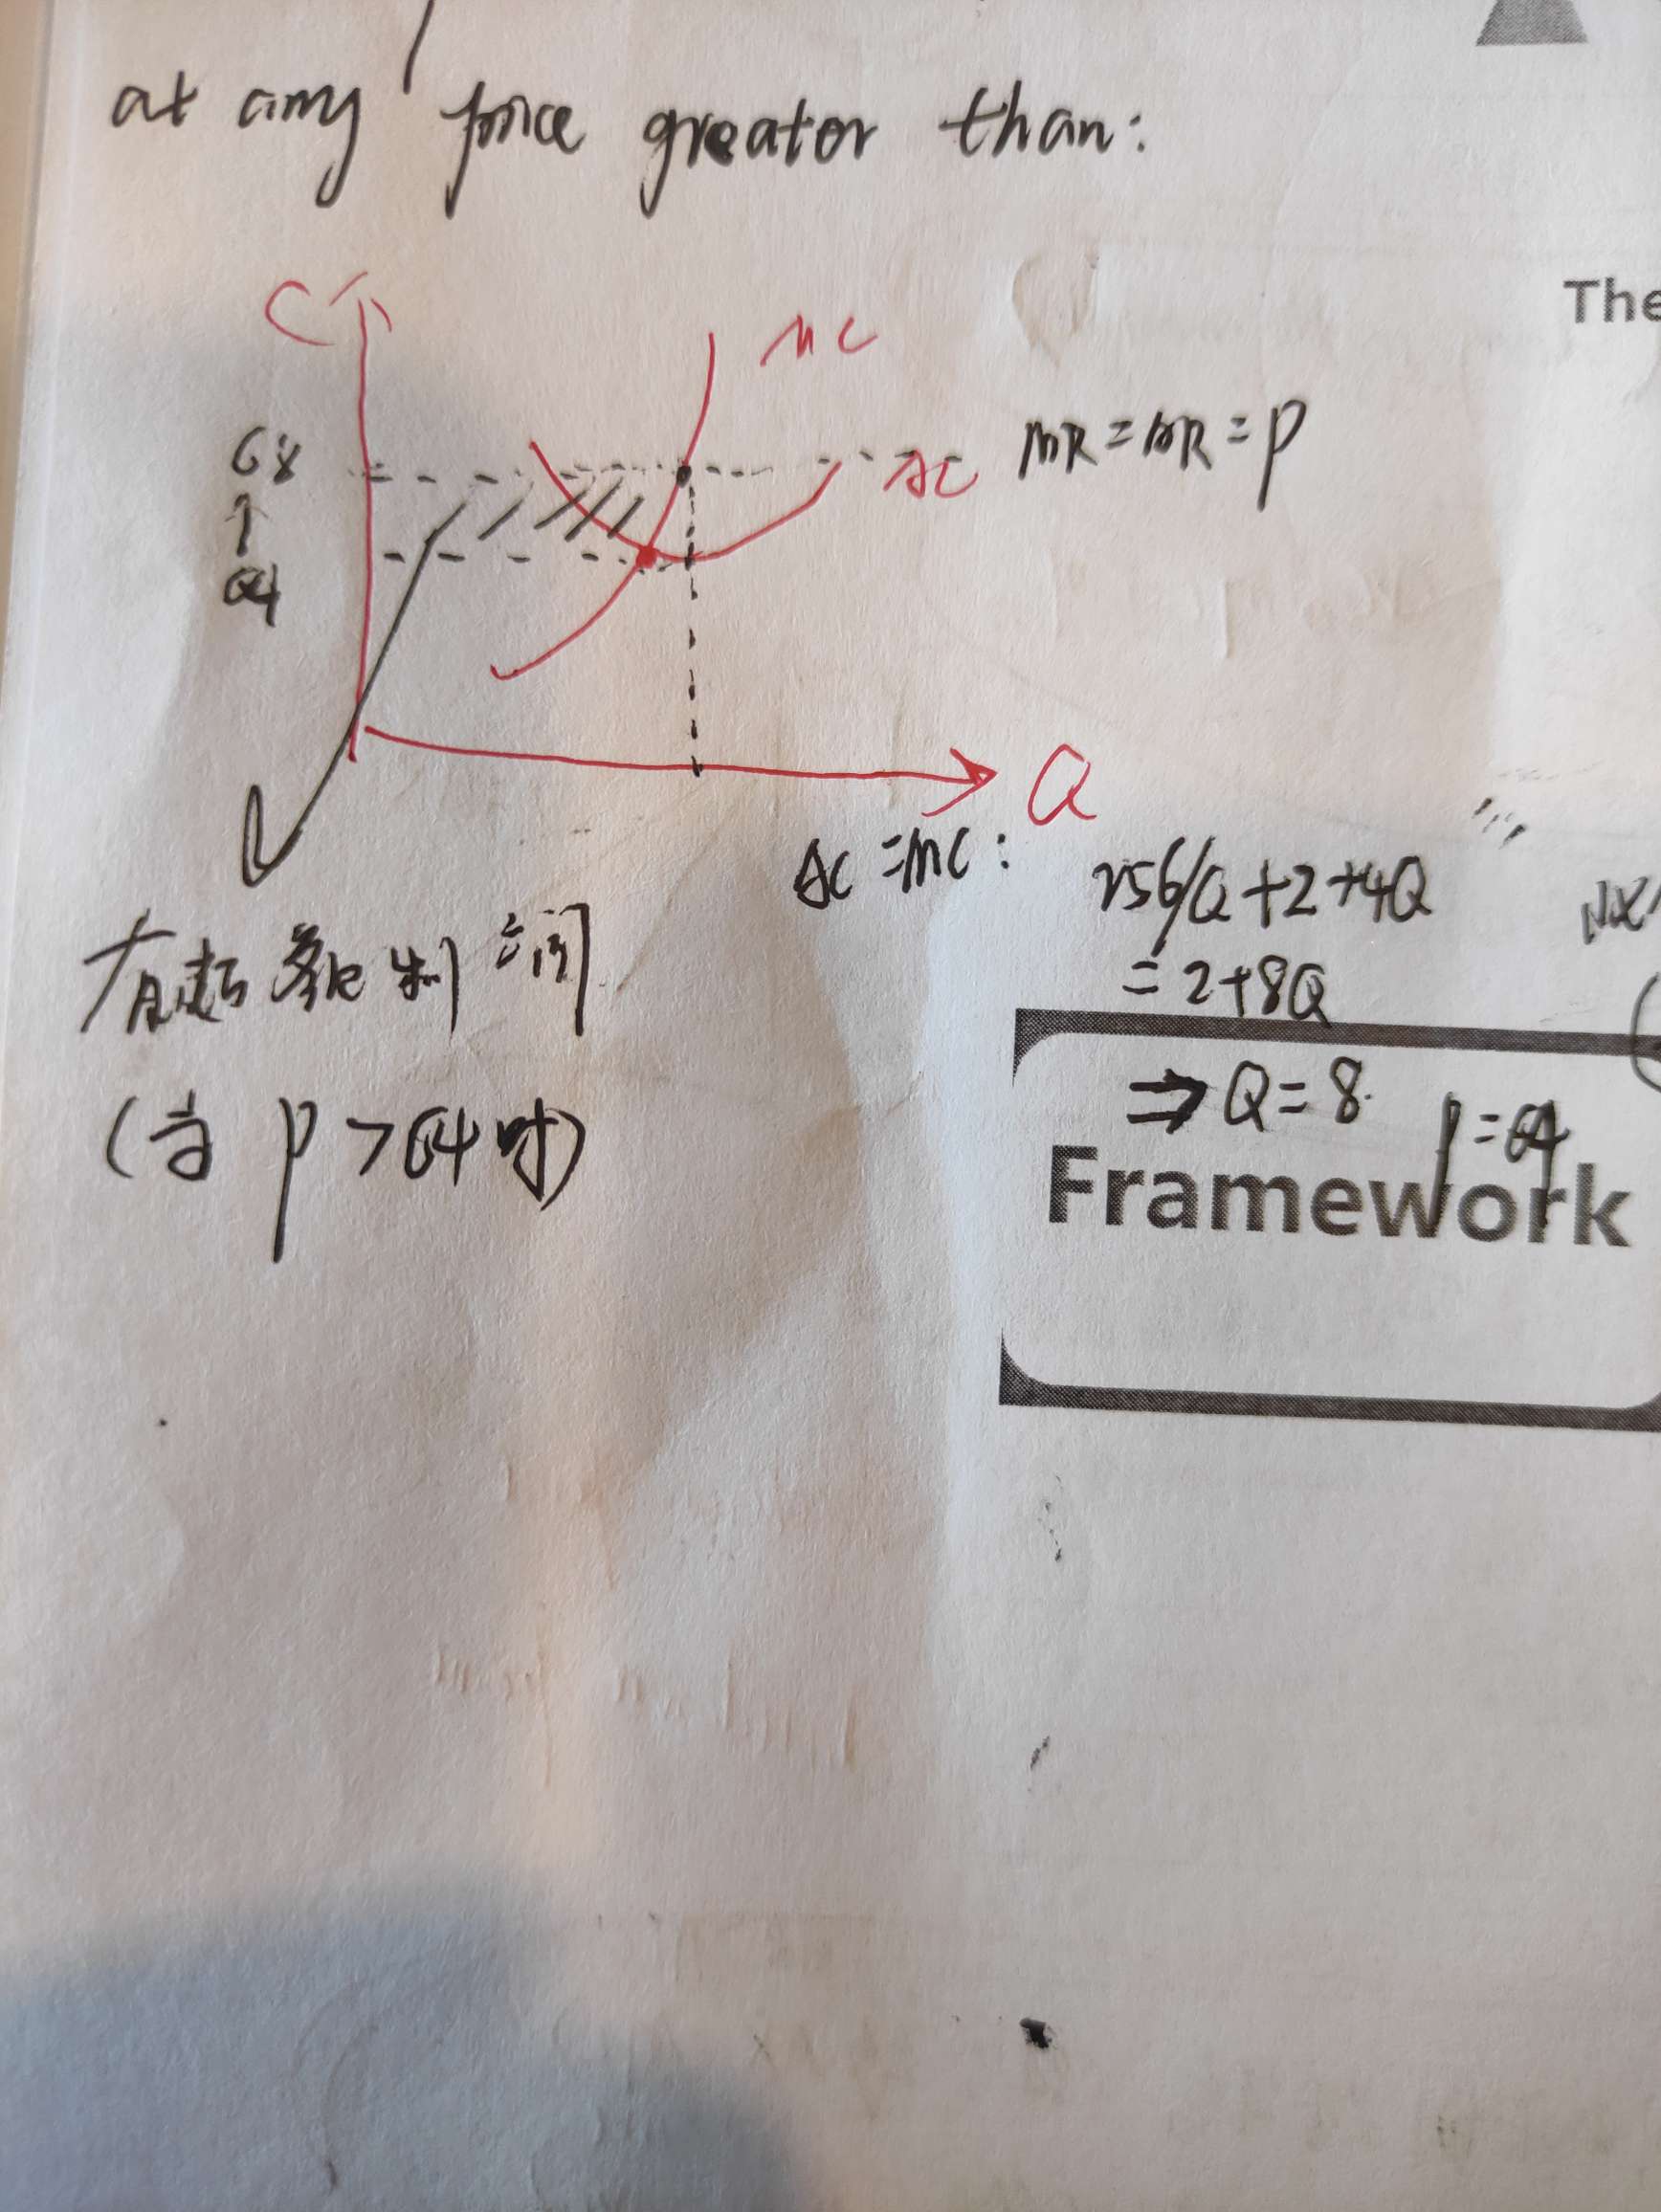 at any price greator than:
The
C
MC
68
AC
MR = AR = P
↑
64
Q
AC = MC:
256/Q + 2 + 4Q
= 2 + 8Q
有超额利润
⇒ Q = 8.
P = 64
(当 P > 64 时)
Framework